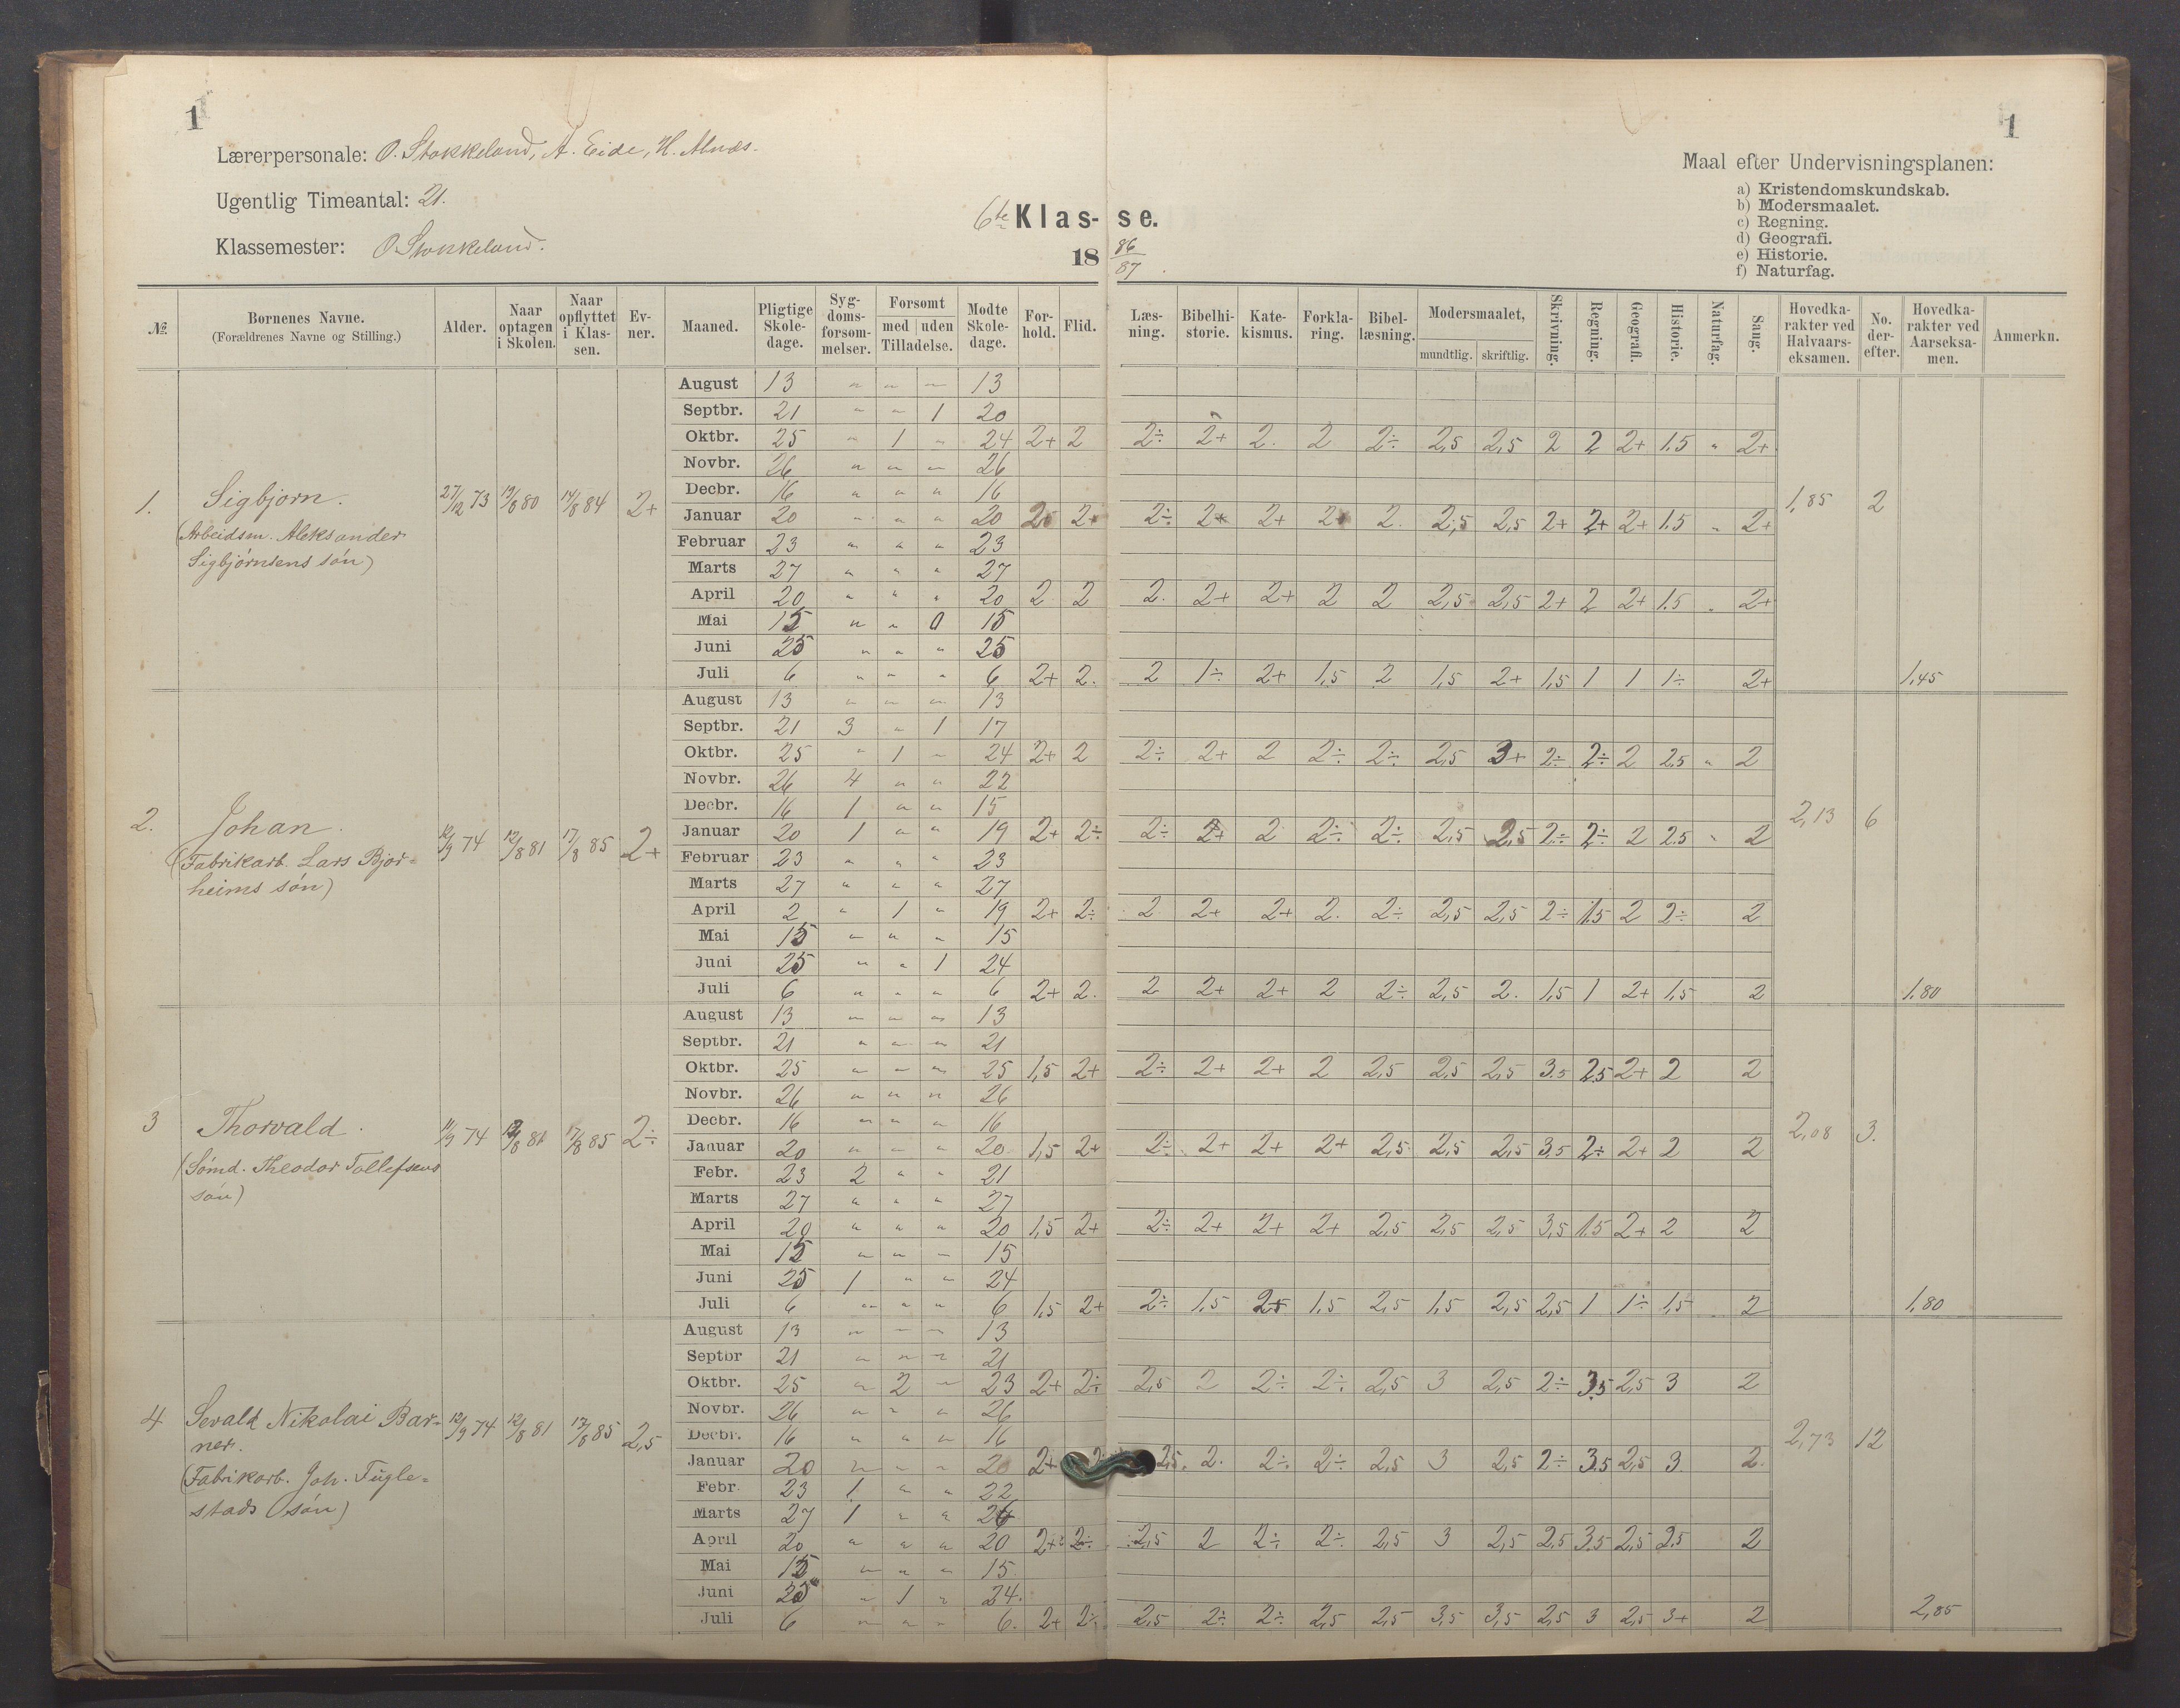 1
1
Lærerpersonale: O. Stokkeland, A. Eide, H. Alnæs.
Ugentlig Timeantal: 21.
Klassemester: O. Stokkeland.
6te Klasse.
18 86/87.
Maal efter Undervisningsplanen:
a) Kristendomskundskab.
b) Modersmaalet.
c) Regning.
d) Geografi.
e) Historie.
f) Naturfag.
№. Børnenes Navne. (Forældrenes Navne og Stilling.) Alder. Naar optagen i Skolen. Naar opflyttet i Klassen. Evner. Maaned. Pligtige Skoledage. Sygdomsforsømmelser. Forsømt med uden Tilladelse. Mødte Skoledage. Forhold. Flid. Læsning. Bibelhistorie. Katekismus. Forklaring. Bibellæsning. Modersmaalet, mundtlig. skriftlig. Skrivning. Regning. Geografi. Historie. Naturfag. Sang. Hovedkarakter ved Halvaarseksamen. No. derefter. Hovedkarakter ved Aarseksamen. Anmerkn.
1. Sigbjørn. 27/12 73 19/8 80 14/8 84 2+
(Arbeidsm. Aleksander
Sigbjørnsens søn)
August 13 " " " 13
Septbr. 21 " " 1 20
Oktbr. 25 " 1 " 24 2+ 2 2÷ 2+ 2. 2 2÷ 2,5 2,5 2 2 2+ 1.5 " 2+
Novbr. 26 " " " 26
Decbr. 16 " " " 16 1,85 2
Januar 20 " " " 20 2+ 2÷ 2+ 2+ 2+ 2. 2,5 2,5 2+ 2+ 2+ 1.5 " 2+
Februar 23 " " " 23
Marts 27 " " " 27
April 20 " " " 20 2 2 2. 2+ 2+ 2 2 2,5 2,5 2+ 2 2+ 1.5 " 2+
Mai 15 " " 0 15
Juni 25 " " " 25
Juli 6 " " " 6 2+ 2. 2 1÷ 2+ 1,5 2 1,5 2+ 1,5 1 1 1÷ 2+ 1,45
2. Johan. 12/9 74 12/8 81 17/8 85 2+
(Fabrikarb. Lars Bjor=
heims søn)
August 13 " " " 13
Septbr. 21 3 " 1 17
Oktbr. 25 " 1 " 24 2+ 2 2÷ 2+ 2 2÷ 2÷ 2,5 3+ 2÷ 2÷ 2 2.5 " 2
Novbr. 26 4 " " 22
Decbr. 16 1 " " 15 2,13 6
Januar 20 1 " " 19 2+ 2÷ 2÷ 2+ 2 2÷ 2÷ 2,5 2,5 2÷ 2÷ 2 2.5 " 2
Februar 23 " " " 23
Marts 27 " " " 27
April 2 " 1 " 19 2+ 2÷ 2 2+ 2+ 2. 2÷ 2,5 2,5 2÷ 1.5 2 2÷ 2
Mai 15 " " " 15
Juni 25 " " 1 24
Juli 6 " " " 6 2+ 2. 2 2+ 2+ 2 2÷ 2,5 2. 1,5 1 2+ 1,5 2 1.80
3 Thorvald. 11/9 74 12/8 81 17/8 85 2÷
(Sømd. Theodor Tollefsens
søn)
August 13 " " " 13
Septbr. 21 " " " 21
Oktbr. 25 " " " 25 1,5 2+ 2÷ 2+ 2+ 2 2,5 2,5 2,5 3.5 2.5 2+ 2 2
Novbr. 26 " " " 26
Decbr. 16 " " " 16 2,08 3.
Januar 20 " " " 20 1,5 2+ 2÷ 2+ 2+ 2+ 2,5 2,5 2,5 3.5 2÷ 2+ 2 2
Febr. 23 2 " " 21
Marts 27 " " " 27
April 20 " " " 20 1,5 2+ 2÷ 2+ 2+ 2+ 2,5 2,5 2,5 3,5 1.5 2+ 2 2
Mai 15 " " " 15
Juni 25 1 " " 24
Juli 6 " " " 6 1,5 2+ 2÷ 1,5 1,5 2,5 1,5 2,5 2,5 1 1÷ 1,5 2 1,80
4 Sevald Nikolai Bar=
ner. 12/9 74 12/8 81 17/8 85 2,5
(Fabrikarb. Joh. Fugle=
stads søn)
August 13 " " " 13
Septbr 21 " " " 21
Oktbr. 25 " 2 " 23 2+ 2÷ 2,5 2 2÷ 2÷ 2,5 3 2,5 2÷ 3.5 2,5 3 2
Novbr. 26 " " " 26
Decbr. 16 " " " 16 2,73 12
Januar 20 " " " 20 2+ 2,5. 2. 2÷ 2÷ 2,5 3 2,5 2÷ 3.5 2,5 3. 2.
Febr. 23 1 " " 22
Marts 27 1 " " 26
April 20 " " " 20 2+ 2÷ 2,5 2 2÷ 2÷ 2,5 3 2,5 2.5 3.5 2,5 2.5 2
Mai 15 " " " 15.
Juni 25 " 1 " 24.
Juli 6 " " " 6. 2+ 2÷ 2,5 2÷ 2÷ 2,5 2,5 3,5 3,5 2,5 3 2,5 3+ 2 2,85